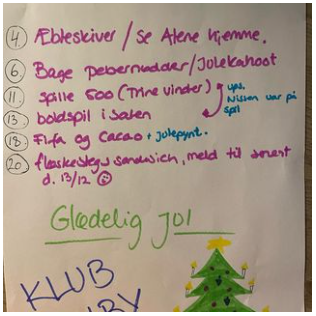 4. Æbleskiver / Se Alene hjemme.
6. Bage pebernødder / Julekahoot
11. spille 500 (Trine vinder)
ups. Nissen var på spil
13. boldspil i salen
18. Fifa og Cacao + julepynt.
20. flæskestegs sandwich, meld til senest
d. 13/12 ☺
Glædelig jul
KLUB
BY